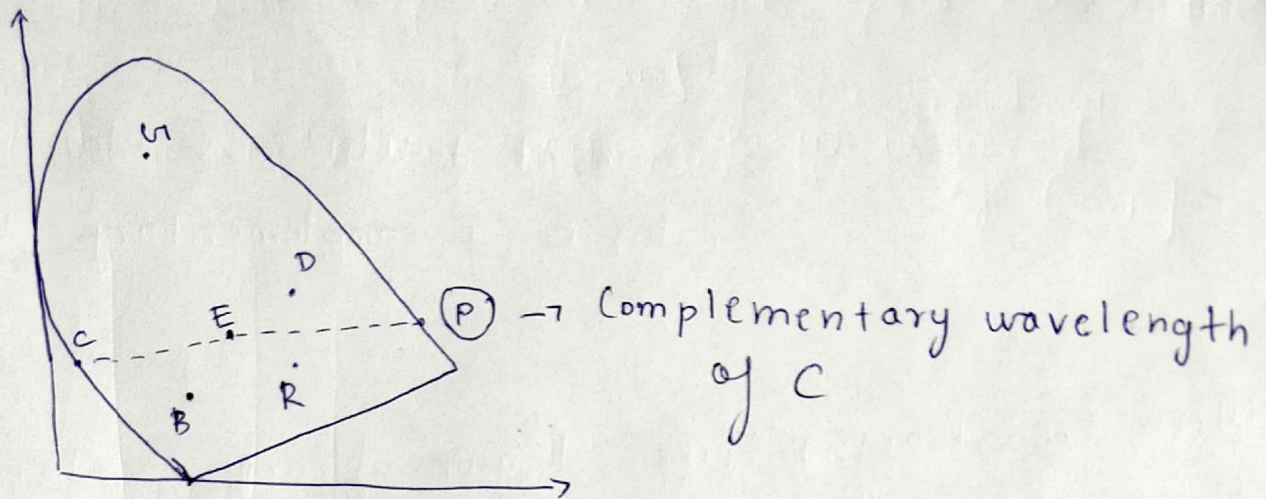 G
D
E
P → Complementary wavelength
of C
C
R
B